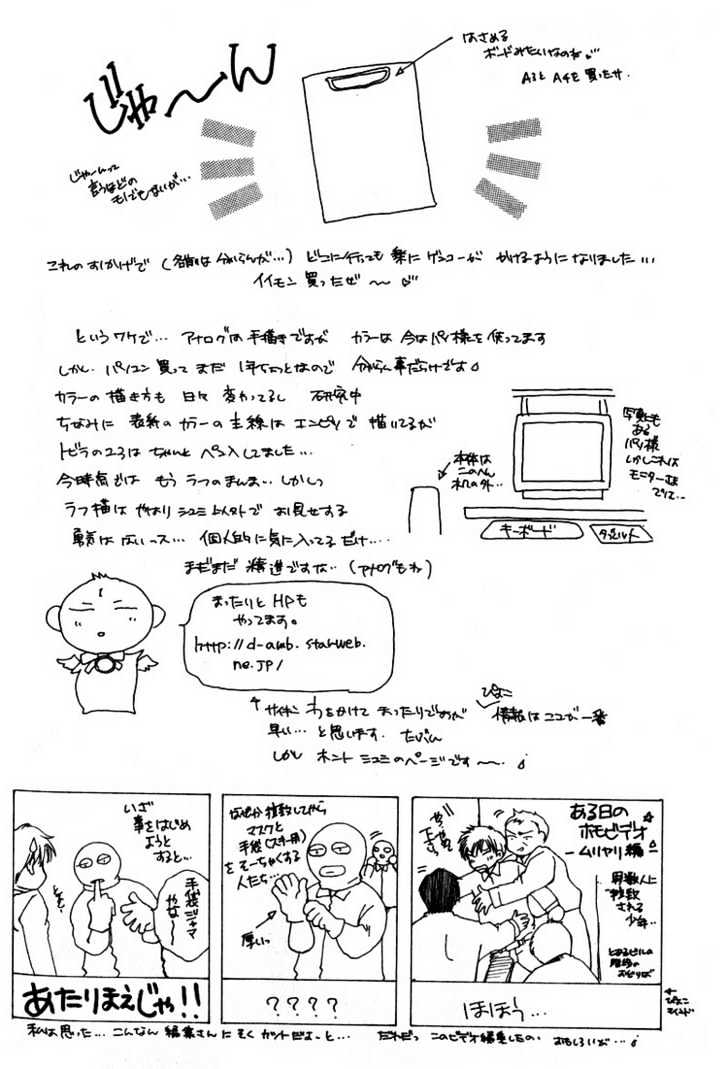 じゃ〜ん
はさめる
ボードみたいなのね…
A3とA4を買ったサ.
じゃーんって
言うほどの
モノでもないが…
これのおかげで(名前は分からんが…)どこに行っても楽にゲンコーがかけるようになりました…
イイモン買ったぜ〜
というワケで…アナログは手描きですがカラーは今はパソ様を使ってます
しかし、パソコン買ってまだ1年ちょっとなので分からん事だらけです
カラーの描き方も日々変わってるし研究中
ちなみに表紙のカラーの主線はエンピツで描いてるが
トビラの2コはちゃんとペン入してました…
今時点ではもうラフのまんま…しかしっ
ラフ描はやはりシュミ以外でお見せする
勇気はないっス…個人的に気に入ってるだけ….
まだまだ精進ですな…(アナログもね)
写真にも
ある
パソ様
しかしこれは
モニターさま
でして…
本体は
このへん
キーボード
タブレット
まったりとHPも
やってます。
http://d-amb.starweb.
ne.jp/
サイキン わをかけてまったりですが
ぴよこ
情報はココが一番
早い…と思います.たぶん
しかしホントシュミのページです〜.
ある日の
ホモビデオ
-ムリヤリ編-
男数人に
複数
される
少年…
とあるビルの
階段の
おどりば
ほほう…
ぴよこ
なぜか複数してから
マスクと
手袋(スキー用)
をそーちゃくする
人たち…
厚いっ
????
いざ
事をはじめ
ようと
すると…
手袋ジャマ
やなー
あたりまえじゃ!!
私は思った…こんなん編集さんに
カットだよーと…
だれだっこのビデオ編集したの.おもしろいが…